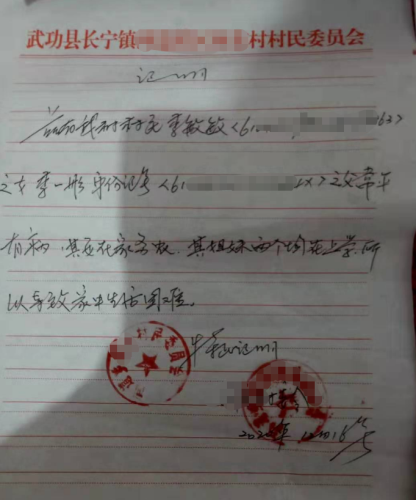 武功县长宁镇村村民委员会
证明
兹有我村村民李敏敏<61 62>
之女李一彤身份证号<61 X>之父常年
有病,其母在家务农,其姐妹两个均在上学,所
以导致家中生活困难。
特此证明
村民委员会
202 年12月16号